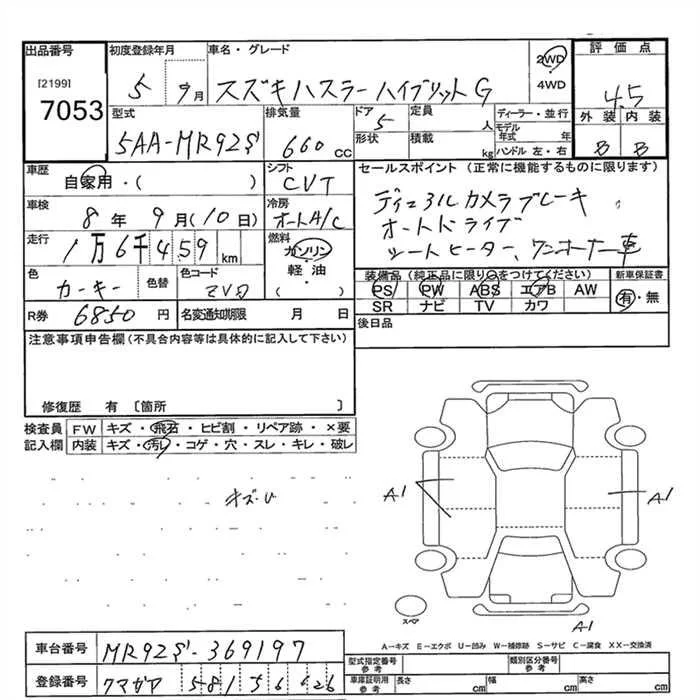 出品番号
[2199]
7053
初度登録年月
5 9月
車名・グレード
スズキハスラーハイブリットG
2WD
4WD
評価点
4.5
外装 内装
B B
型式
5AA-MR92S
排気量
660 cc
ドア 5
形状
定員 人
積載 kg
ディーラー・並行
モデル年式 年
ハンドル 左・右
車歴
自家用・( )
シフト
CVT
セールスポイント (正常に機能するものに限ります)
デュアルカメラブレーキ
オートドライブ
シートヒーター、ワンオーナー車
車検
8年 9月(10日)
冷房
オートA/C
走行
1万6千459 km
燃料
ガソリン
軽油・
( )
色
カーキー
色替
色コード
装備品 (純正品に限り○をつけてください)
PS PW ABS エアB AW
SR ナビ TV カワ
新車保証書
有・無
R券 6850 円
名変通知期限 月 日
後日品
注意事項申告欄(不具合内容等は具体的に記入して下さい)
修復歴 有 〔箇所 〕
検査員記入欄
FW キズ・飛石・ヒビ割・リペア跡・×要
内装 キズ・汚レ・コゲ・穴・スレ・キレ・破レ
キズ・U
A1
A1
スペア
A1
A-キズ E-エクボ U-凹み W-補修跡 S-サビ C-腐食 XX-交換済
車台番号 MR92S-369197
登録番号 クマガヤ 581 5 6626
型式指定番号 参考
類別区分番号 参考
車庫証明用 参考
長さ cm
幅 cm
高さ cm